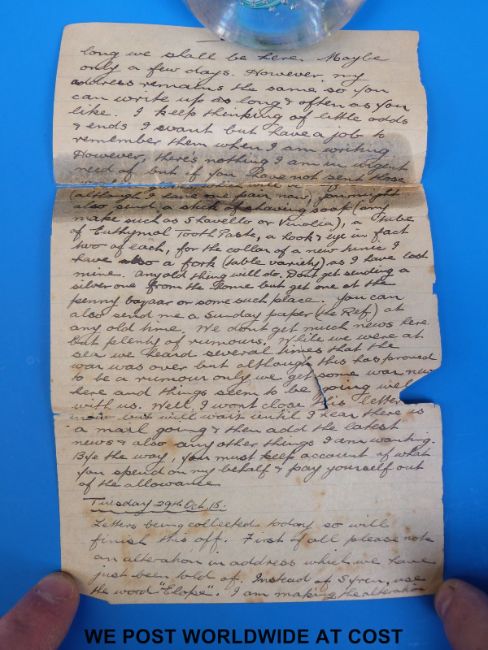 long we shall be here. Maybe
only a few days. However my
address remains the same so you
can write up as long & often as you
like. I keep thinking of little odds
& ends I want but have a job to
remember them when I am writing
However, there's nothing I am in urgent
need of but if you have not sent those
(although I have one pair now) you might
also send a stick of shaving soap (any
make such as Shavallo or Vinolia), a tube
of Euthymol Tooth Paste, a hook & eye in fact
two of each, for the collar of a new tunic I
have also a fork (table variety) as I have lost
mine. Any old thing will do. Don't get sending a
silver one from the Home but get one at the
penny bazaar or some such place. You can
also send me a Sunday paper (the Ref) at
any old time. We don't get much news here
but plenty of rumours. While we were at
sea we heard several times that the
war was over but although this has proved
to be a rumour only we get some war news
here and things seem to be going well
with us. Well I wont close this letter
now but will wait until I hear there is
a mail going & then add the latest
news & also any other things I am wanting.
Bye the way, you must keep account of what
you spend on my behalf & pay yourself out
of the allowance.
Tuesday 29th Oct, 15.
Letters being collected today so will
finish this off. First of all please note
an alteration in address which we have
just been told of. Instead of use
the word I am making the alteration
WE POST WORLDWIDE AT COST